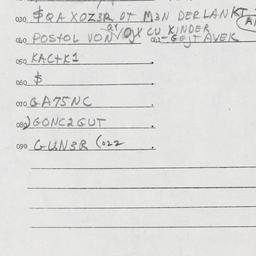 030 $QA XOZ3R OT M2N DERLANKT
040 POSTOL VON CU KINDER
GEJT AVEK
050 KACTK1
060 $
070 GA75NC
080) GONC2GUT
090 GUN3R (022